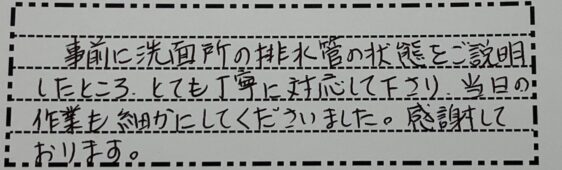 事前に洗面所の排水管の状態をご説明
したところ、とても丁寧に対応して下さり、当日の
作業も細かにしてくださいました。感謝して
おります。